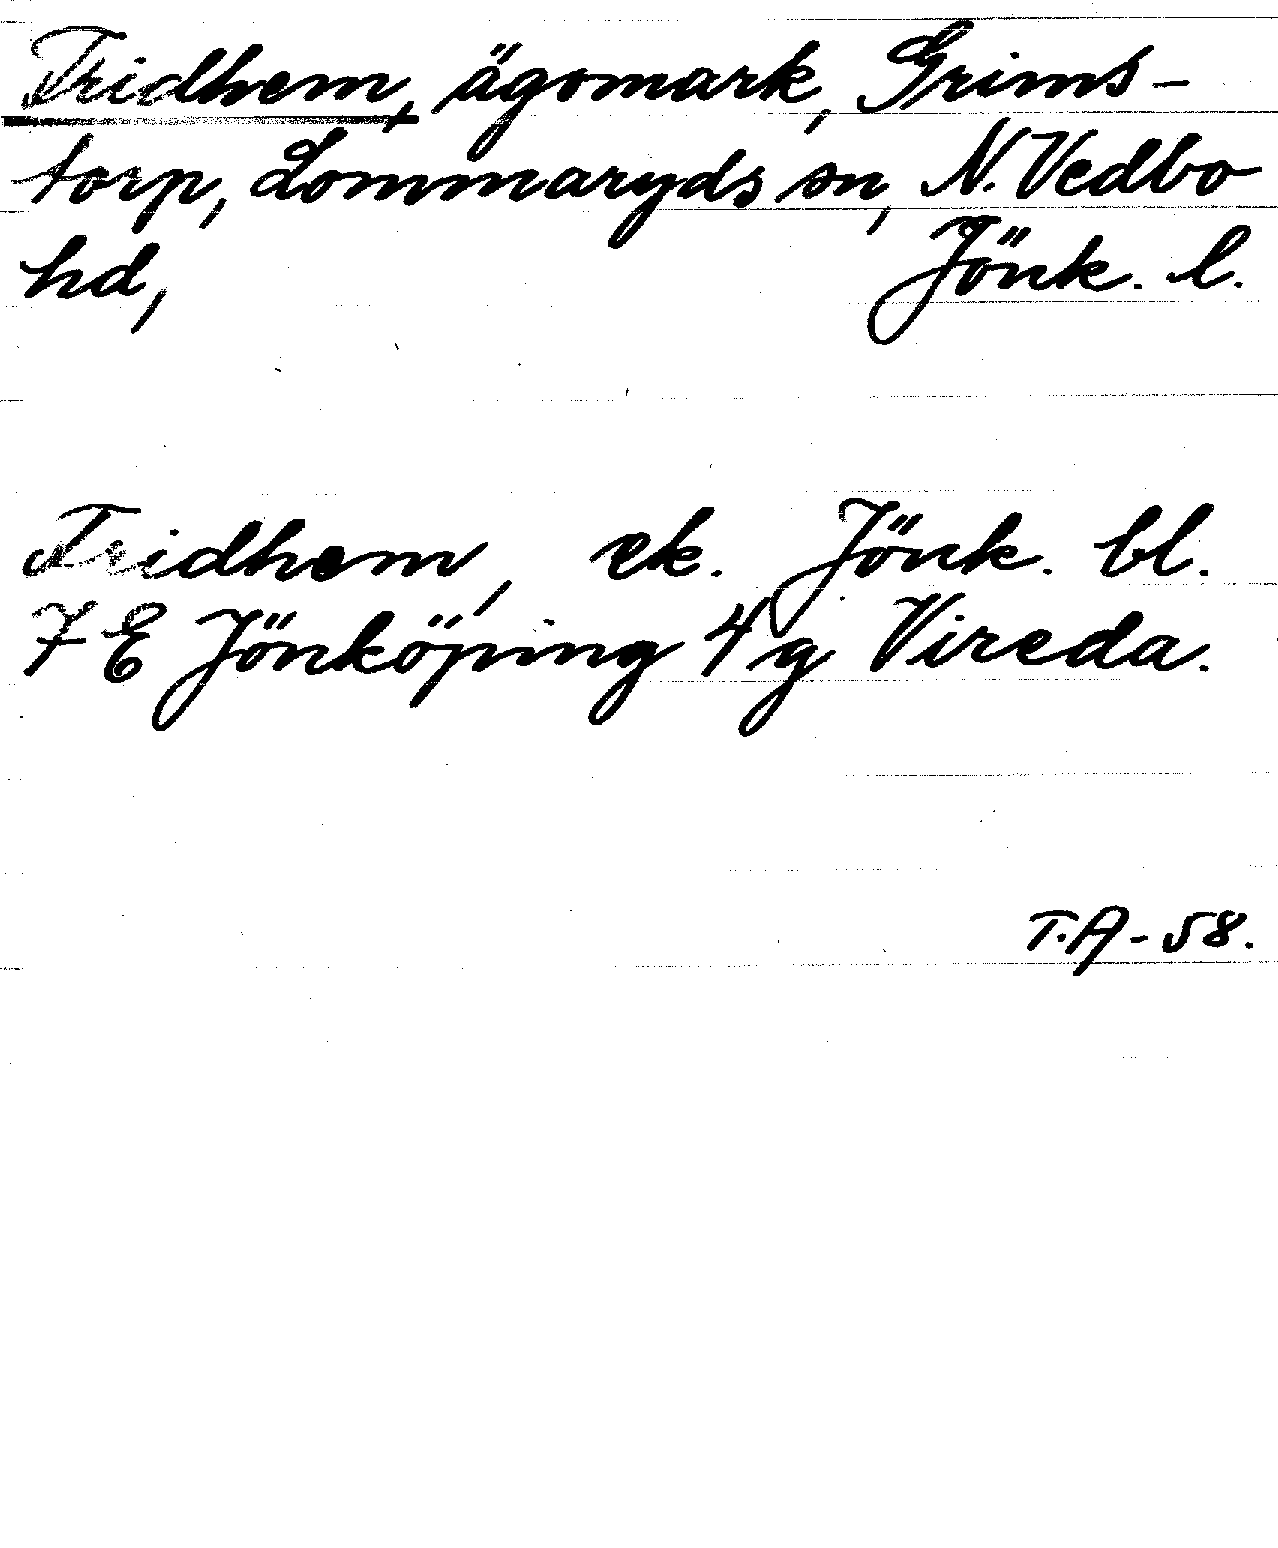 Fridhem, ägomark, Grims-
torp, Lommaryds sn, N. Vedbo
hd, Jönk. l.
Fridhem, ek. Jönk. bl.
7 E Jönköping 4 g Vireda.
T.A-58.